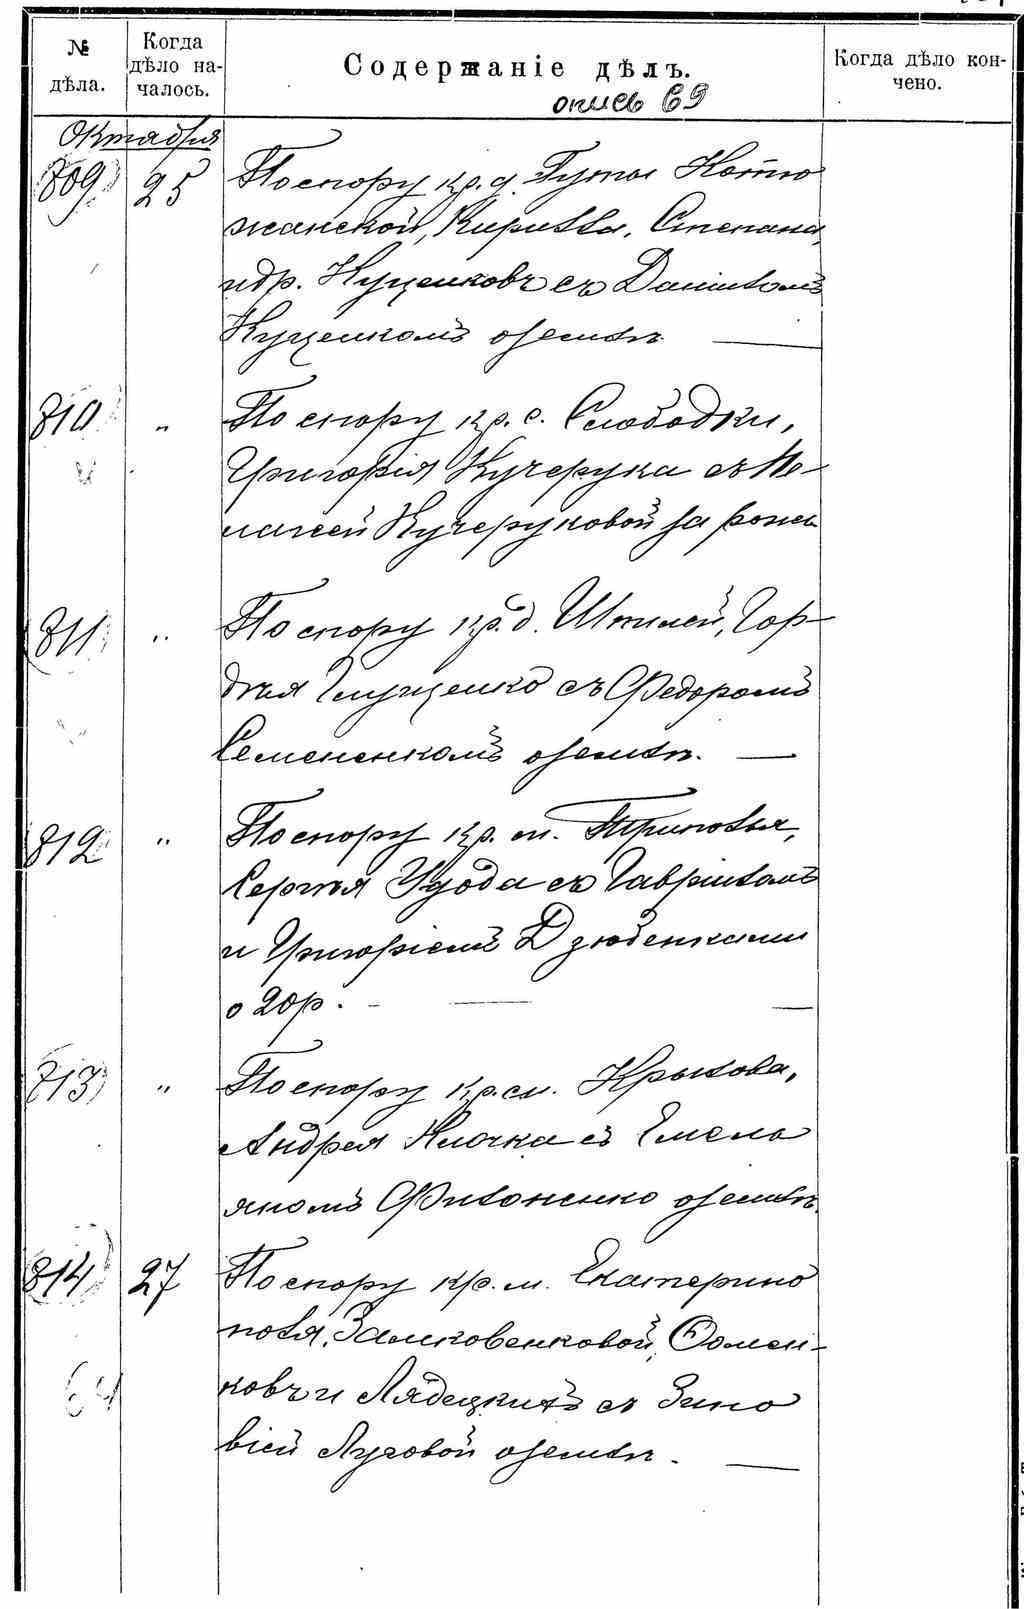 № дѣла.
Когда дѣло началось.
Содержаніе дѣлъ.
Когда дѣло кончено.
опись 69
Октября
809 25 По спору кр. д. Гуты Котю
жанской, Кирилла, Степана,
и др. Куценковъ съ Даніиломъ
Куценкомъ о землѣ
810 " По спору кр. с. Слободки,
Григорія Кучерука съ Пе-
лагеей Кучеруковой за рожь
811 " По спору кр. д. Шпилей, Гор-
дѣя Глущенко съ Федоромъ
Семененкомъ о землѣ.
812 " По спору кр. м. Триполья,
Сергѣя Удода съ Гавріиломъ
и Григоріемъ Дзюбенками
о 20 р.
813 " По спору кр. см. Крылова,
Андрея Клочка съ Емель
яномъ Филоненко о землѣ.
814 27 По спору кр. м. Екатерино
поля, Замковенковой, Фомен-
ковъ и Лядецкихъ съ Зино
віей Луговой о землѣ.
64